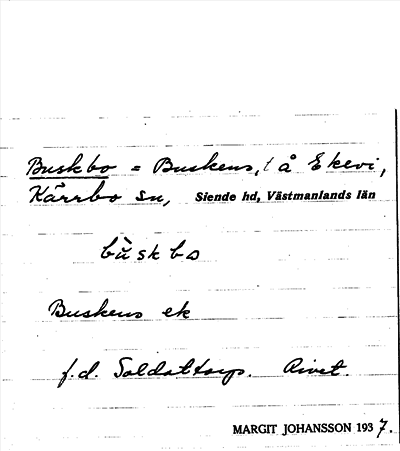 Buskbo = Buskens, t å Ekevi,
Kärrbo sn, Siende hd, Västmanlands län
bùskbo
Buskens ek
f.d. Soldattorp. Rivet.
MARGIT JOHANSSON 1937.